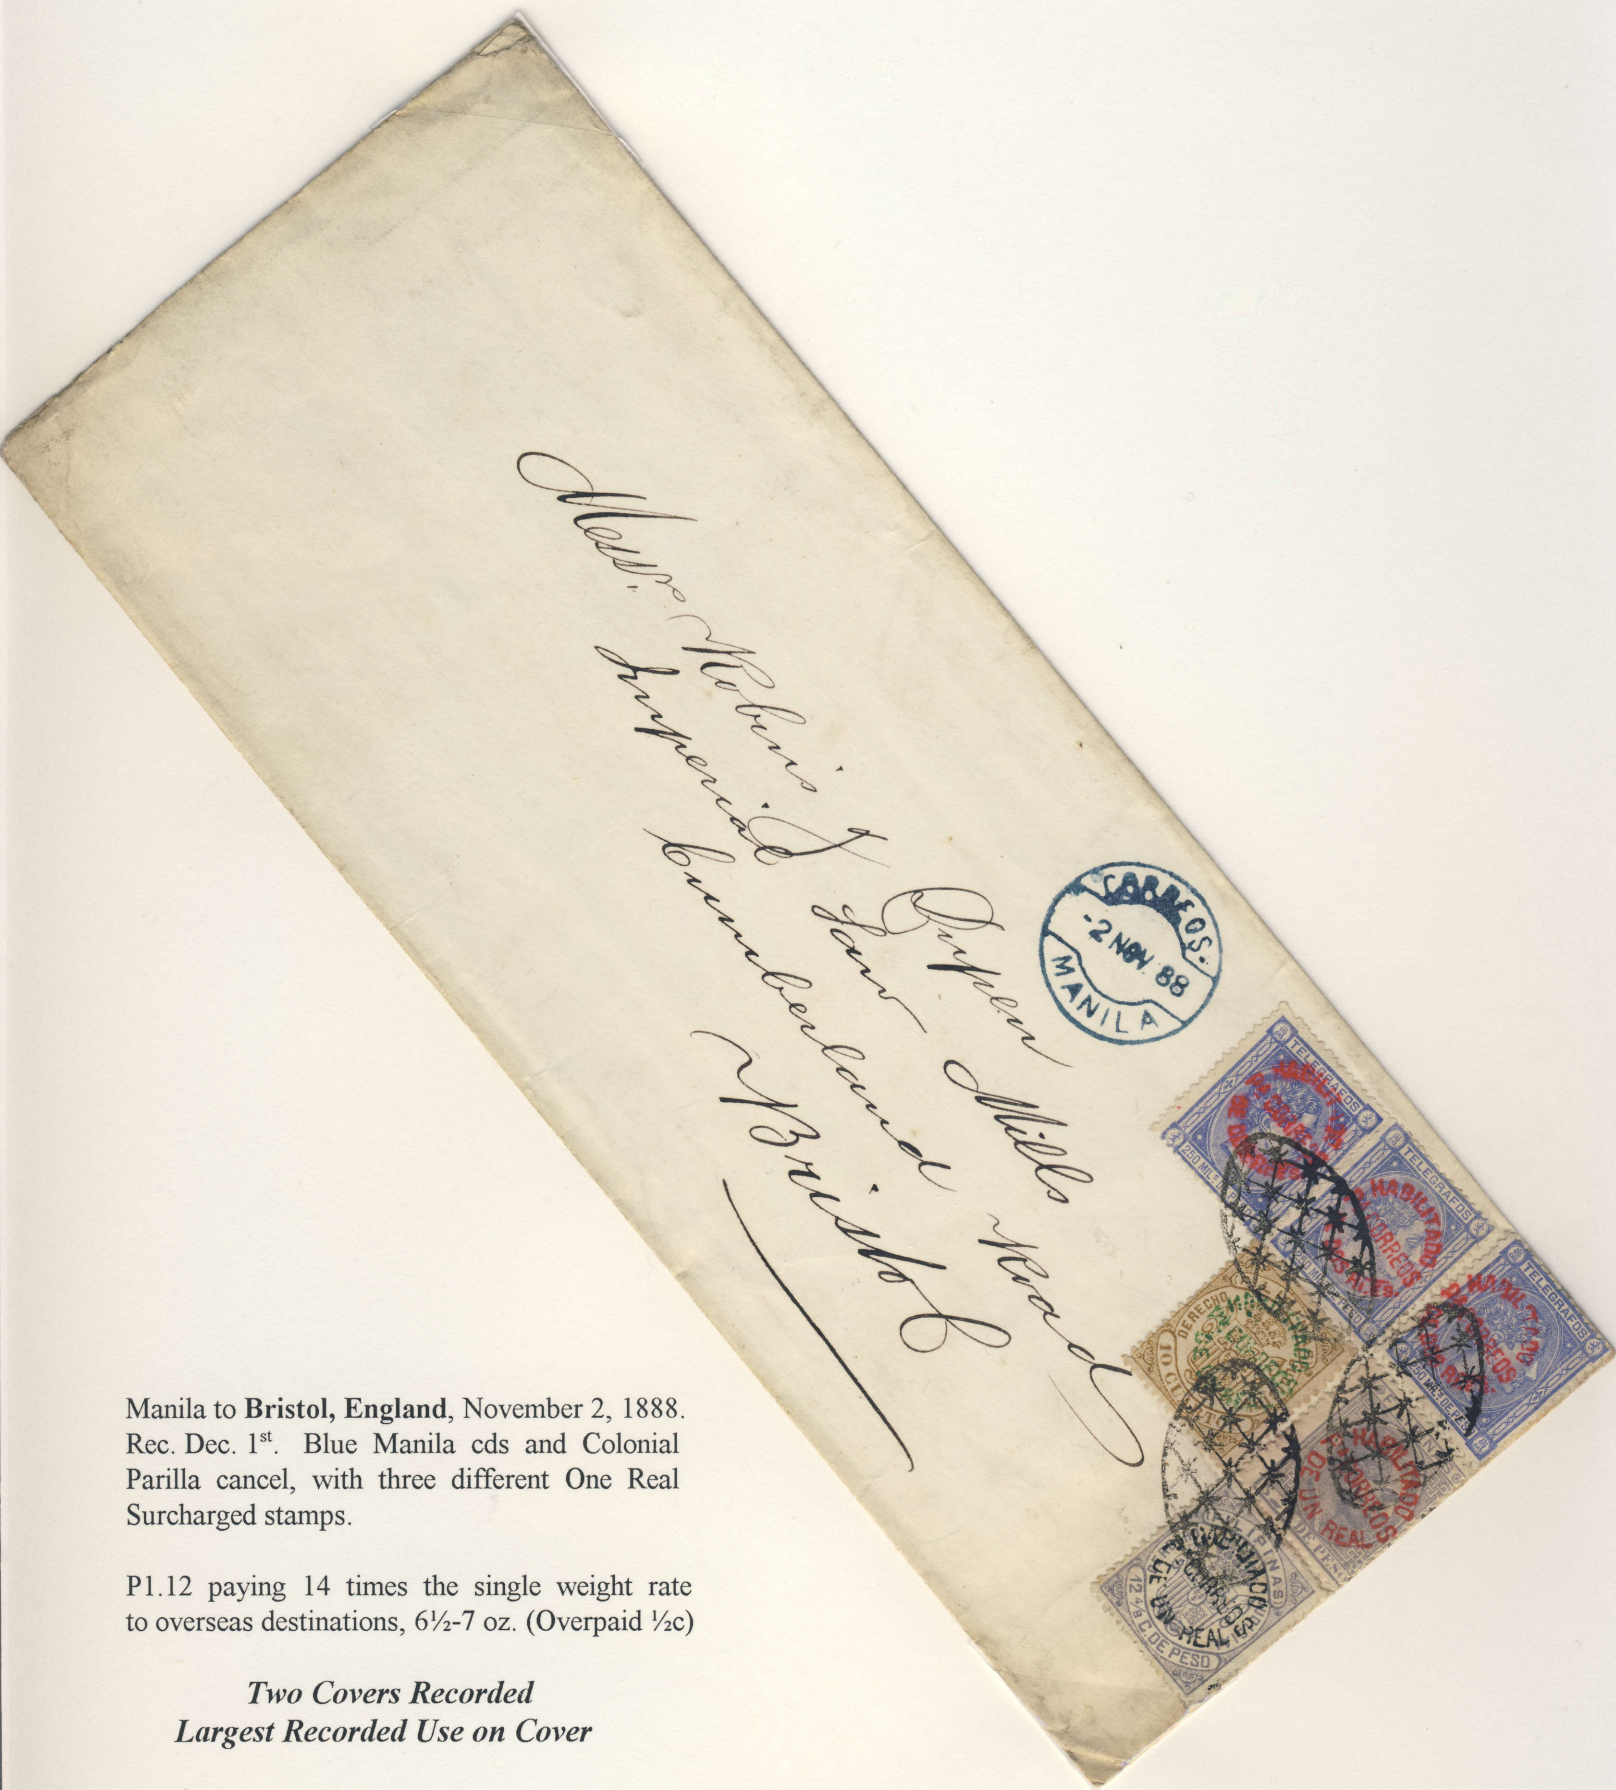 Messrs. Robins & Dupen
Imperial Saw Mills
Cumberland Road
Bristol
CORREOS.
-2 NOV 88
MANILA
TELEGRAFOS
250 MILS
TELEGRAFOS
HABILITADO
CORREOS
TELEGRAFOS
CORREOS
DERECHO
10
HABILITADO
CORREOS
DE UN REAL
DE PESO
FILIPINAS
CORREOS
DE UN REAL
12 4/8 C. DE PESO
Manila to Bristol, England, November 2, 1888.
Rec. Dec. 1st. Blue Manila cds and Colonial
Parilla cancel, with three different One Real
Surcharged stamps.
P1.12 paying 14 times the single weight rate
to overseas destinations, 6½-7 oz. (Overpaid ½c)
Two Covers Recorded
Largest Recorded Use on Cover